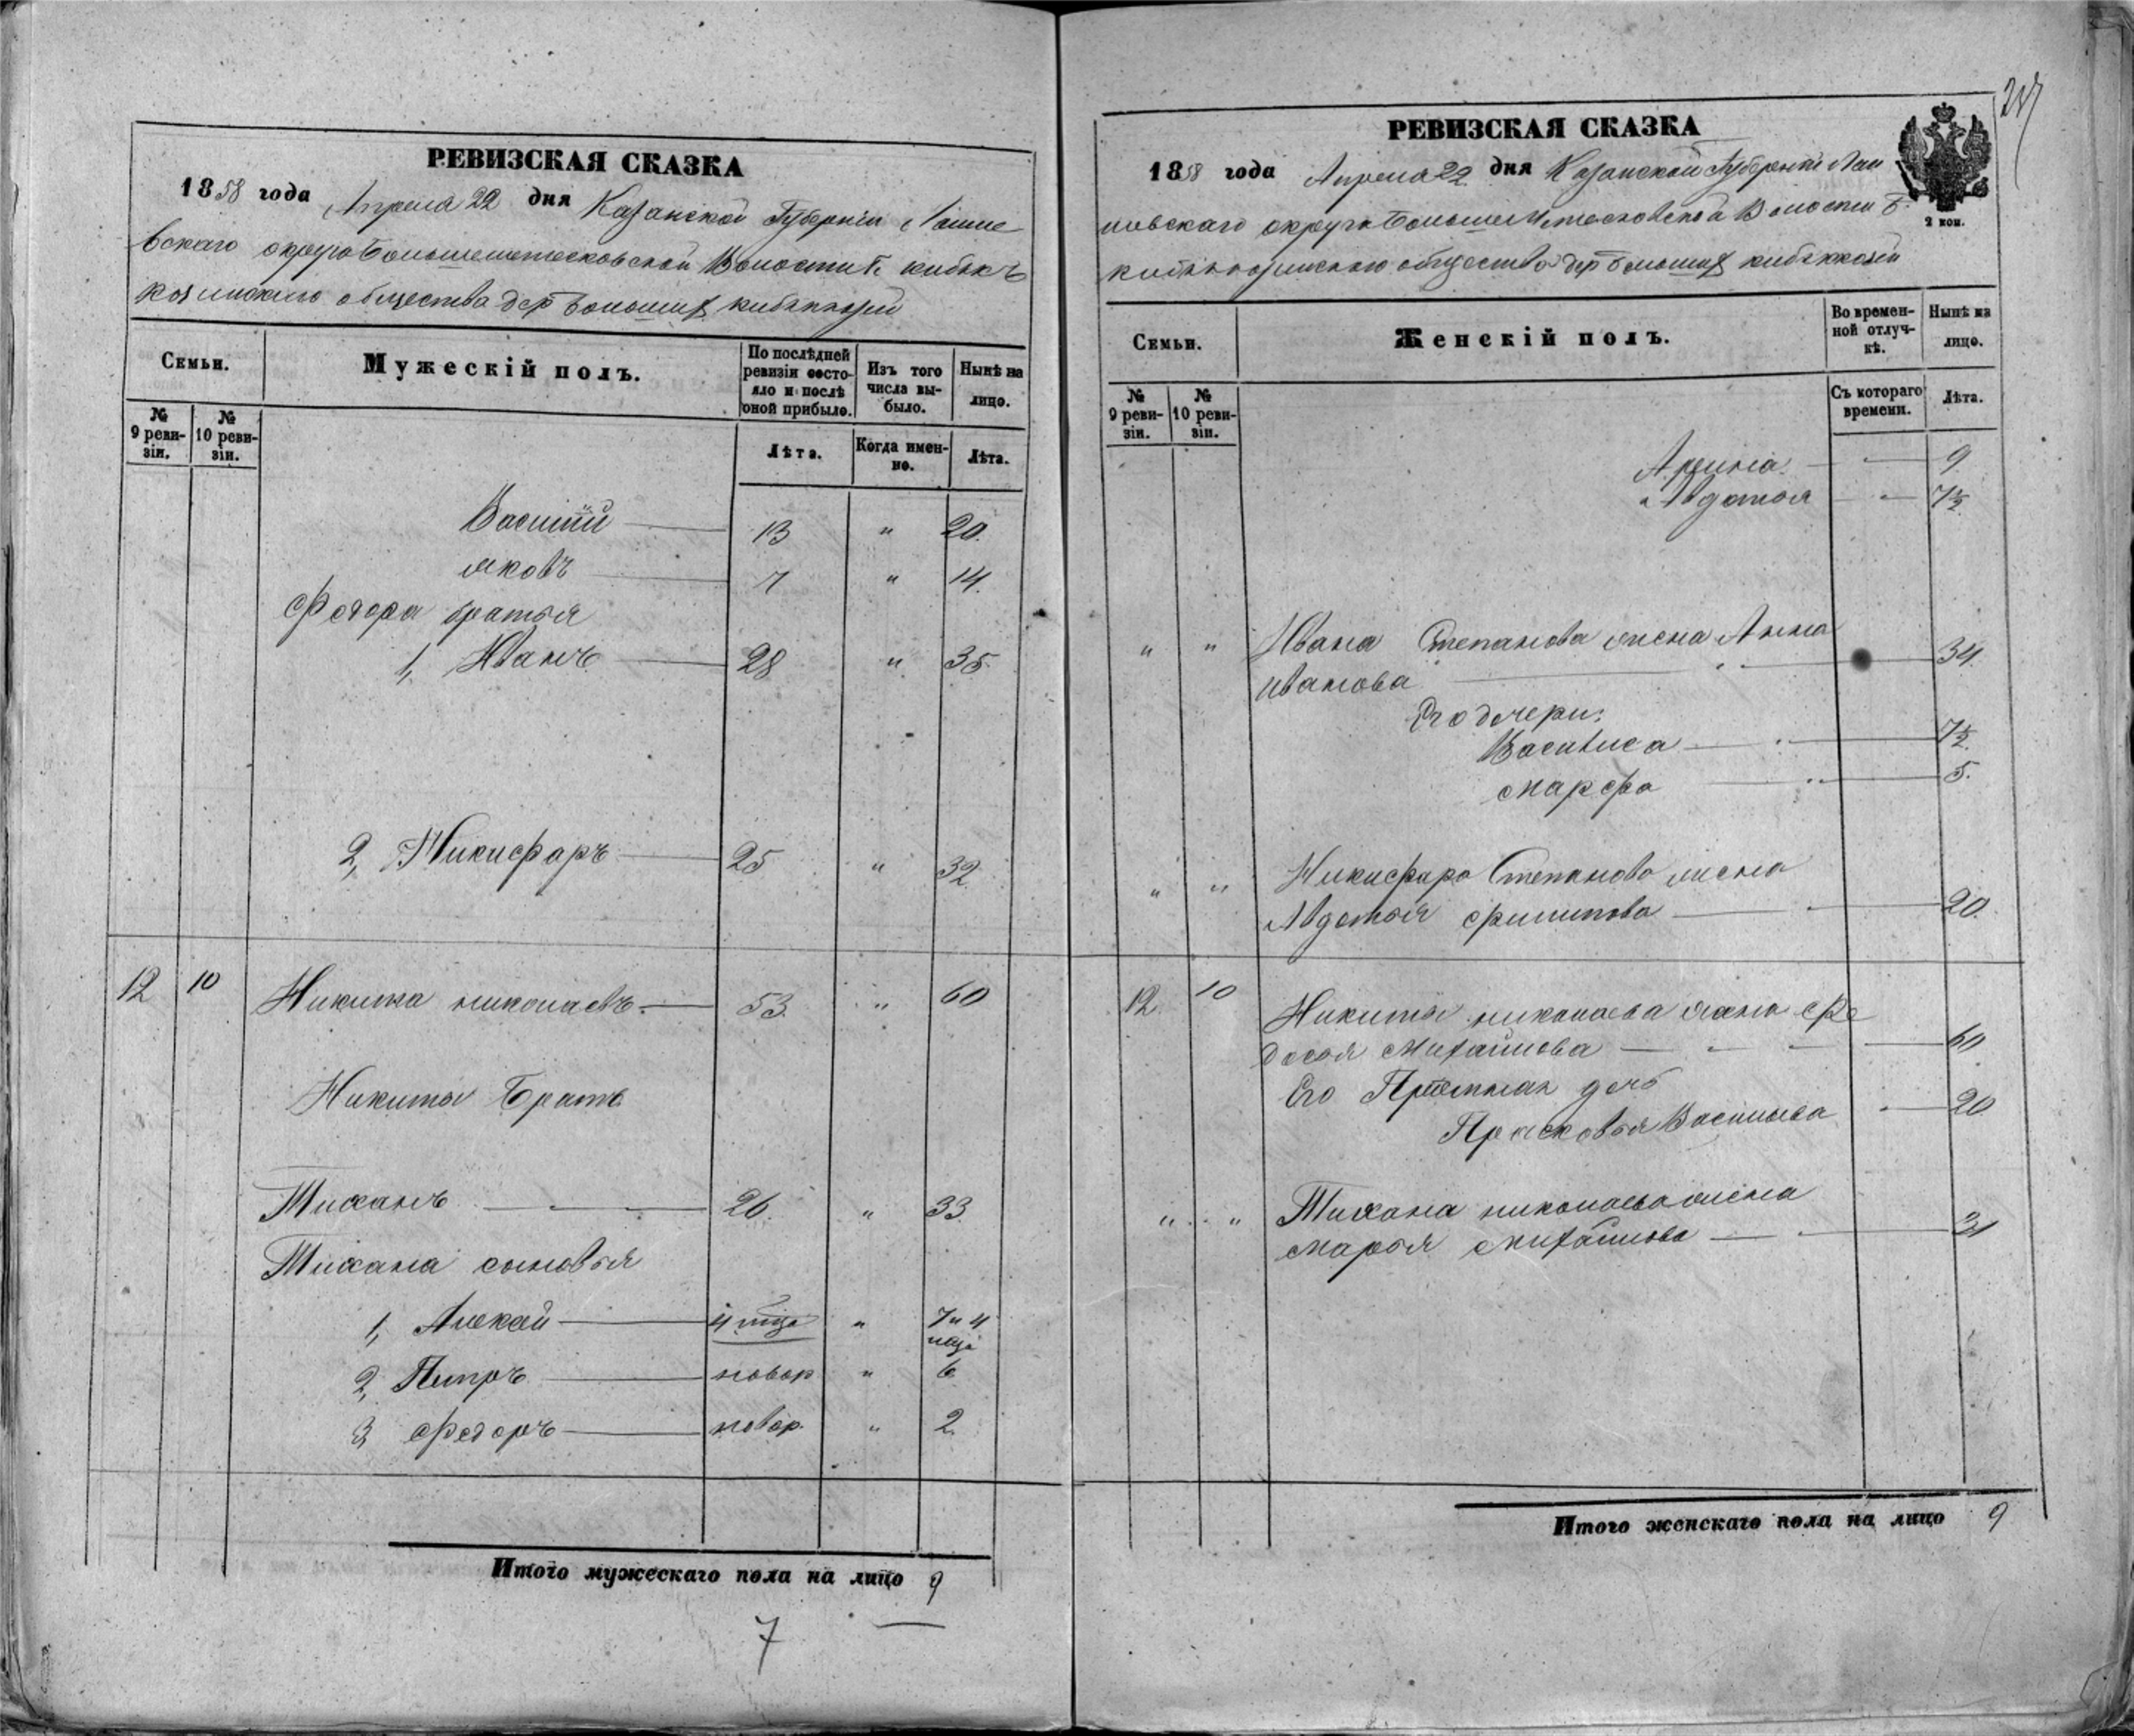 РЕВИЗСКАЯ СКАЗКА
1858 года Апреля 22 дня Казанской Губернии Лаише
вскаго округа Большеметесковской Волости Б. кибякъ
козинскаго общества дер Большихъ кибяккозей
Семьи.
Мужескій полъ.
По послѣдней ревизіи состояло и послѣ оной прибыло.
Изъ того числа выбыло.
Нынѣ на лицо.
№ 9 ревизіи.
№ 10 ревизіи.
Лѣта.
Когда именно.
Лѣта.
Василiй 13 " 20.
Яковъ 7 " 14.
Федора братья
1, Иванъ 28 " 35.
2, Никифаръ 25 " 32.
12 10 Никита николаевъ 53. " 60
Никиты Братъ
Тиханъ 26. " 33.
Тихана сыновья
1, Алекей " 7 и 4
2, Петръ новор " 6
3 Федоръ новор. " 2.
Итого мужескаго пола на лицо 9
7
РЕВИЗСКАЯ СКАЗКА
1858 года Апреля 22 дня Казанской Губерніи Лаи
шевскаго округа Волости Б.
общества дер Большихъ кибяккозей
2 коп.
Семьи.
Женскій полъ.
Во временной отлучкѣ.
Нынѣ на лицо.
№ 9 ревизіи.
№ 10 ревизіи.
Съ котораго времени.
Лѣта.
Арина " 9
Авдотья " 7½
" " Ивана Степанова жена Анна
иванова " 34.
Его дочери:
Василиса " 7½
Марфа " 5.
" " Никифара Степанова жена
Авдотья филипова " 20.
12. 10 Никиты николаева жана Фе
досья Михайлова " 60
Его Прiемная дочь
Прасковья Васильева " 20
" " Тихана николаева жена
Марья Михайлова " 31
Итого женскаго пола на лицо 9